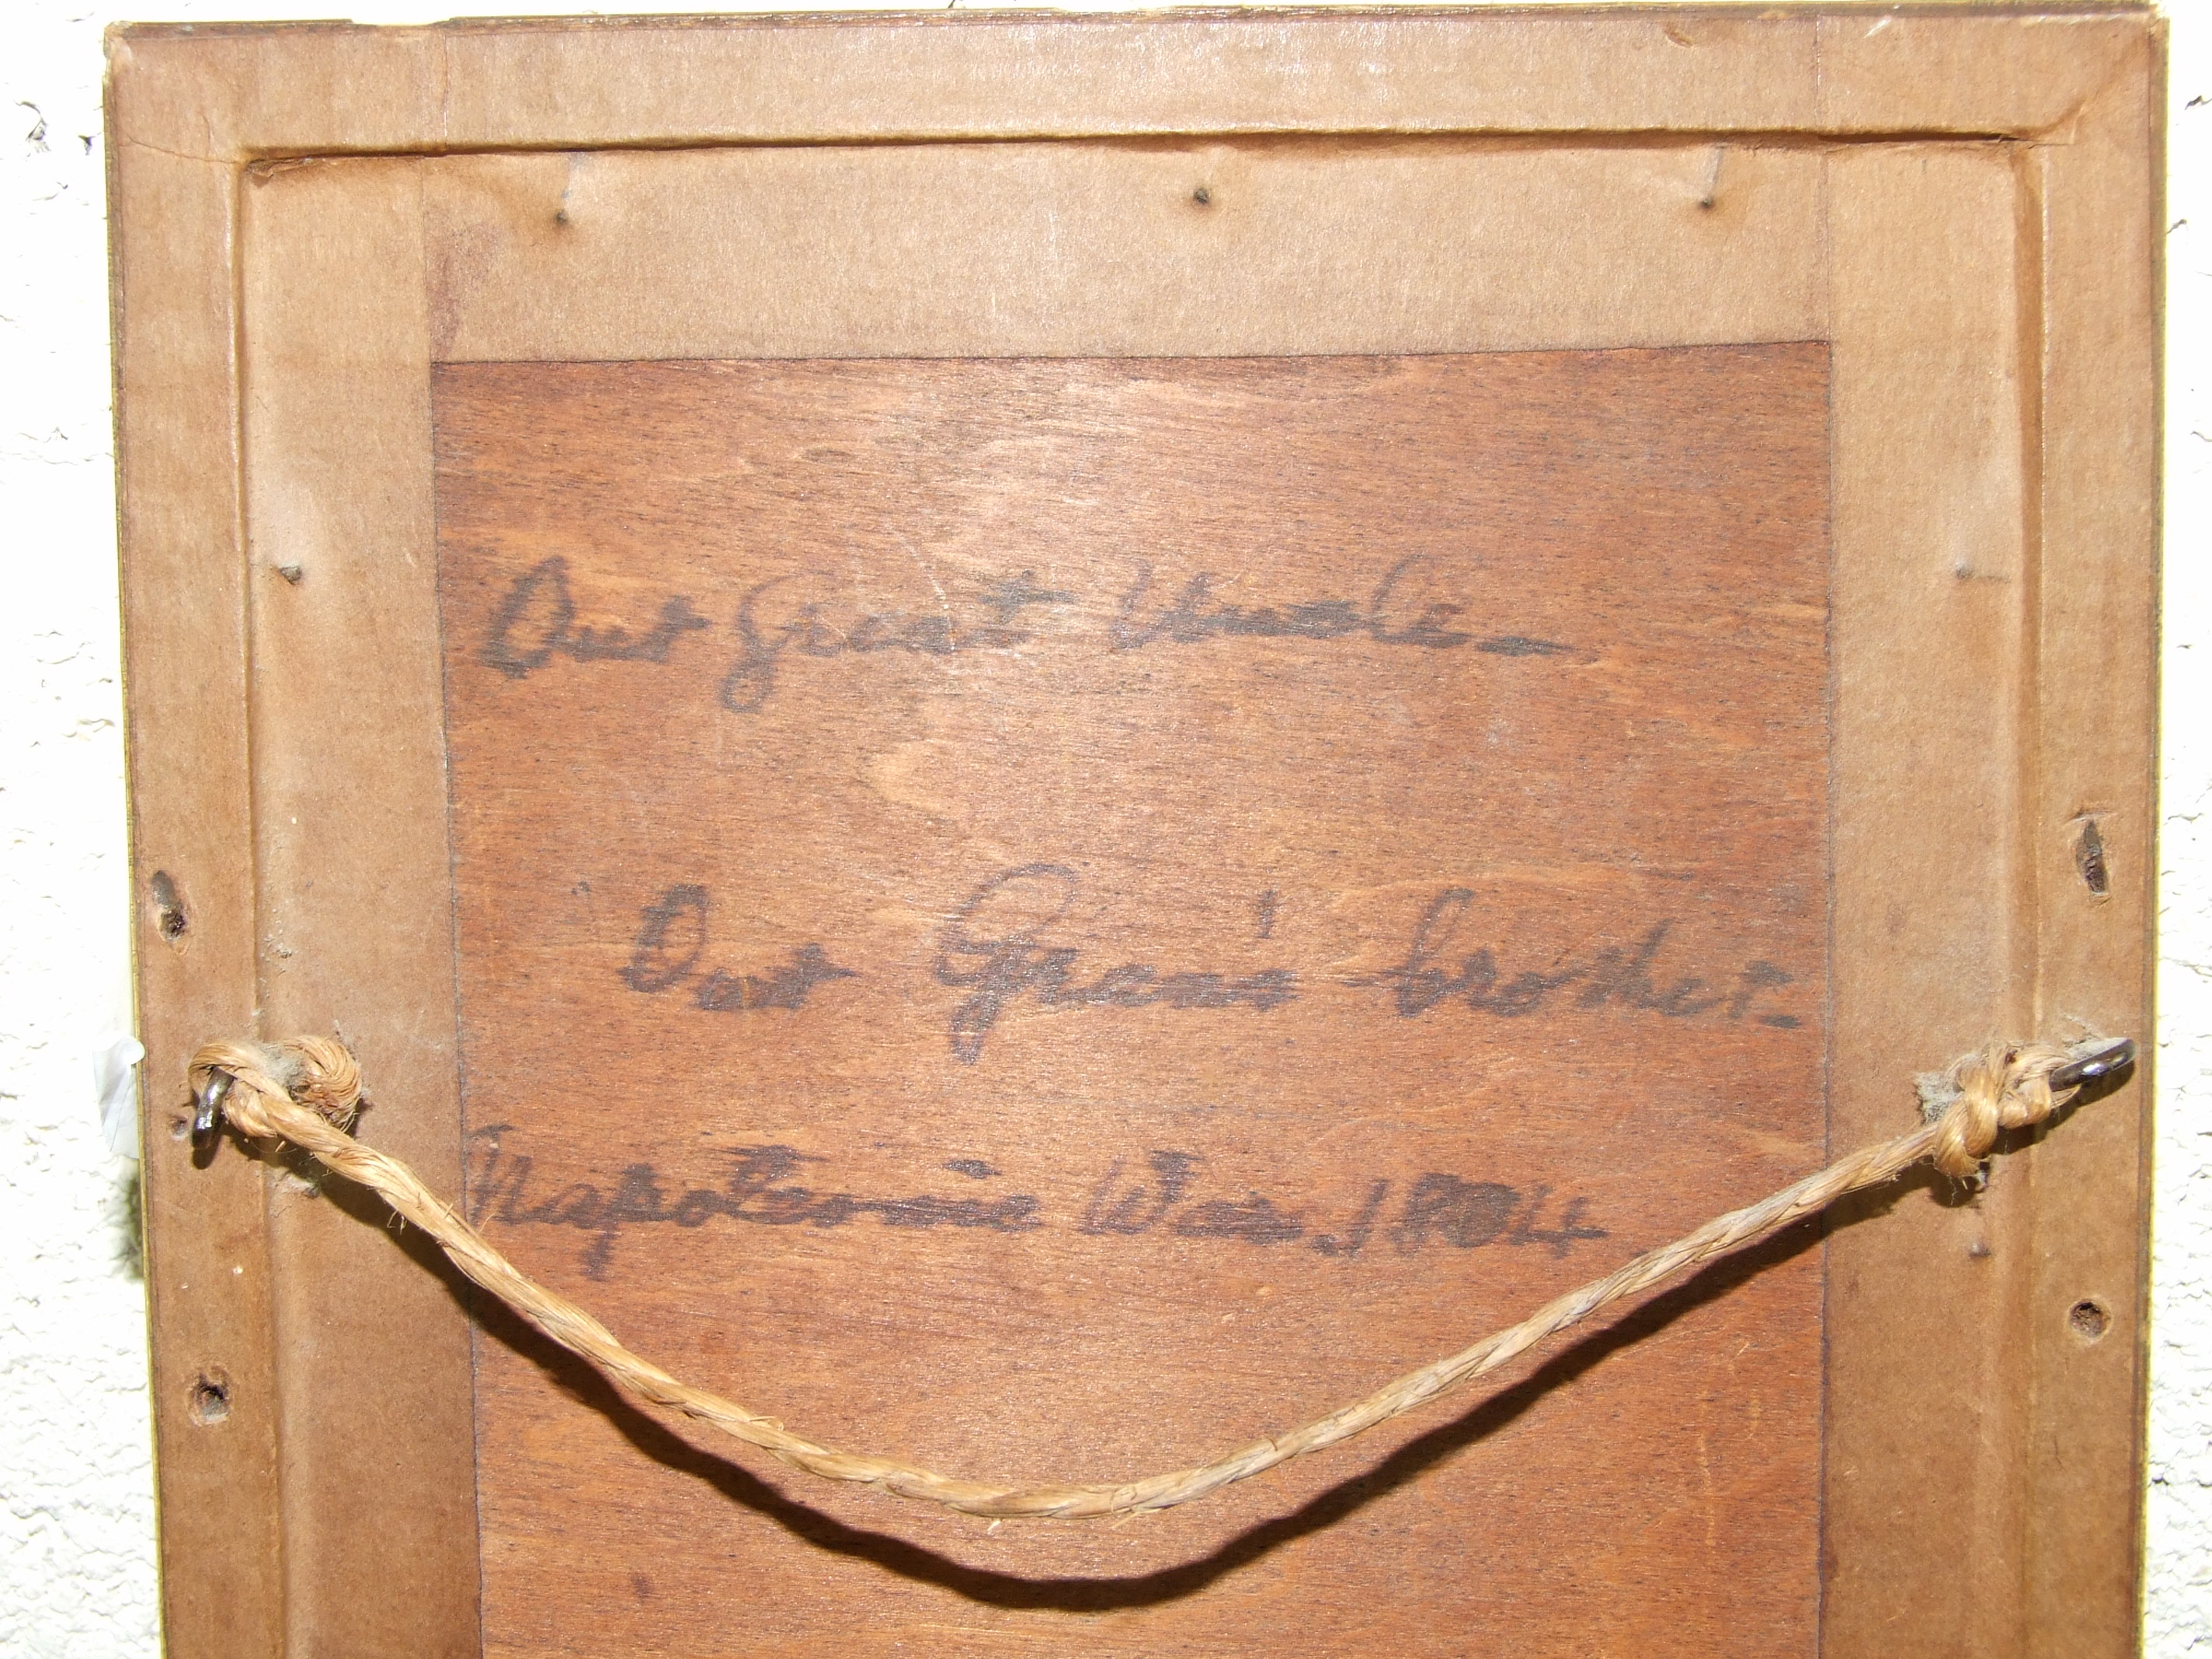 Our great Uncle
Our Gran's brother
Napoleonic War, 1804